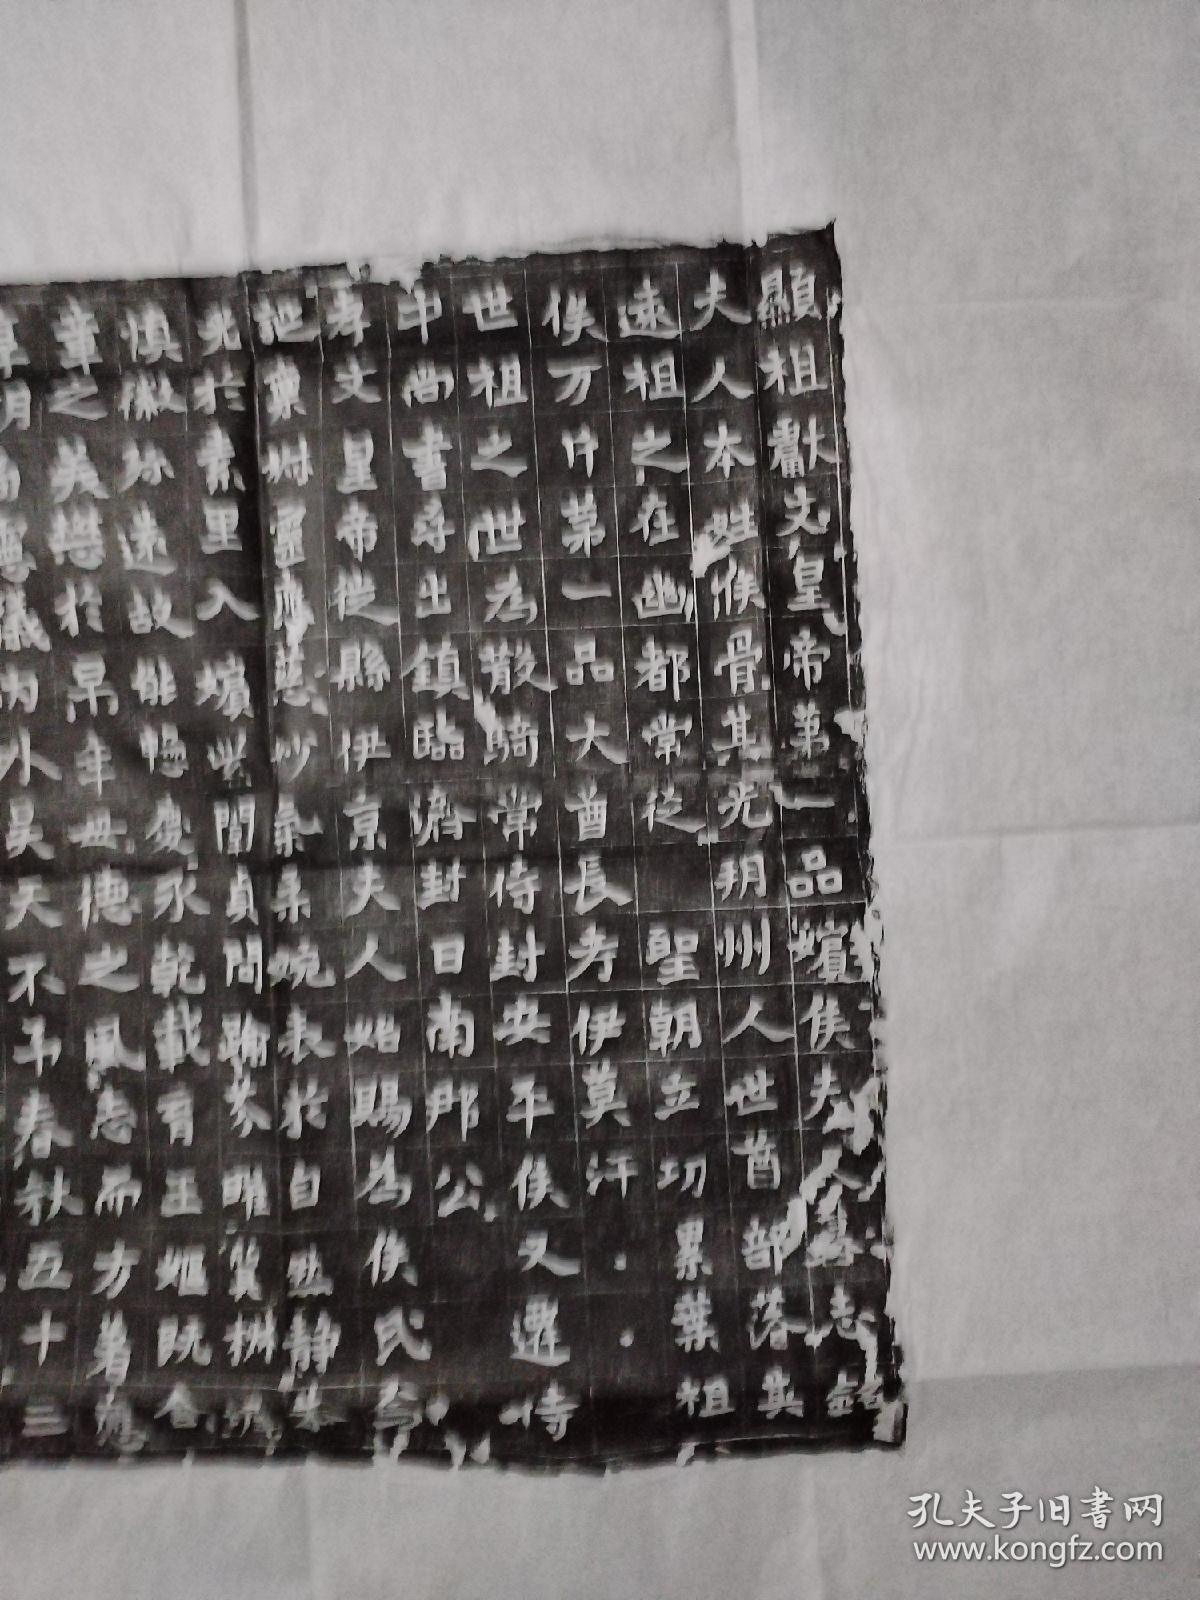 顯祖獻文皇帝第一品嬪侯夫人墓志銘
夫人本姓侯骨其先朔州人世酋部落其
遠祖之在幽都常從聖朝立功累葉祖
侯万斤第一品大酋長考伊莫汗
世祖之世為散騎常侍封安平侯又遷侍
中尚書尋出鎮臨濟封日南郡公
孝文皇帝徙縣伊京夫人始賜為侯氏
誕稟州靈應慈妙氣柔婉表於自然靜
光於素里入嬪紫闈貞問踰芬
慎徽弥遠故能愍慶承乾載育王姬既
筆之美懋於早年母德之風志而方著
内外昊天不弔春秋五十三
孔夫子旧书网
www.kongfz.com